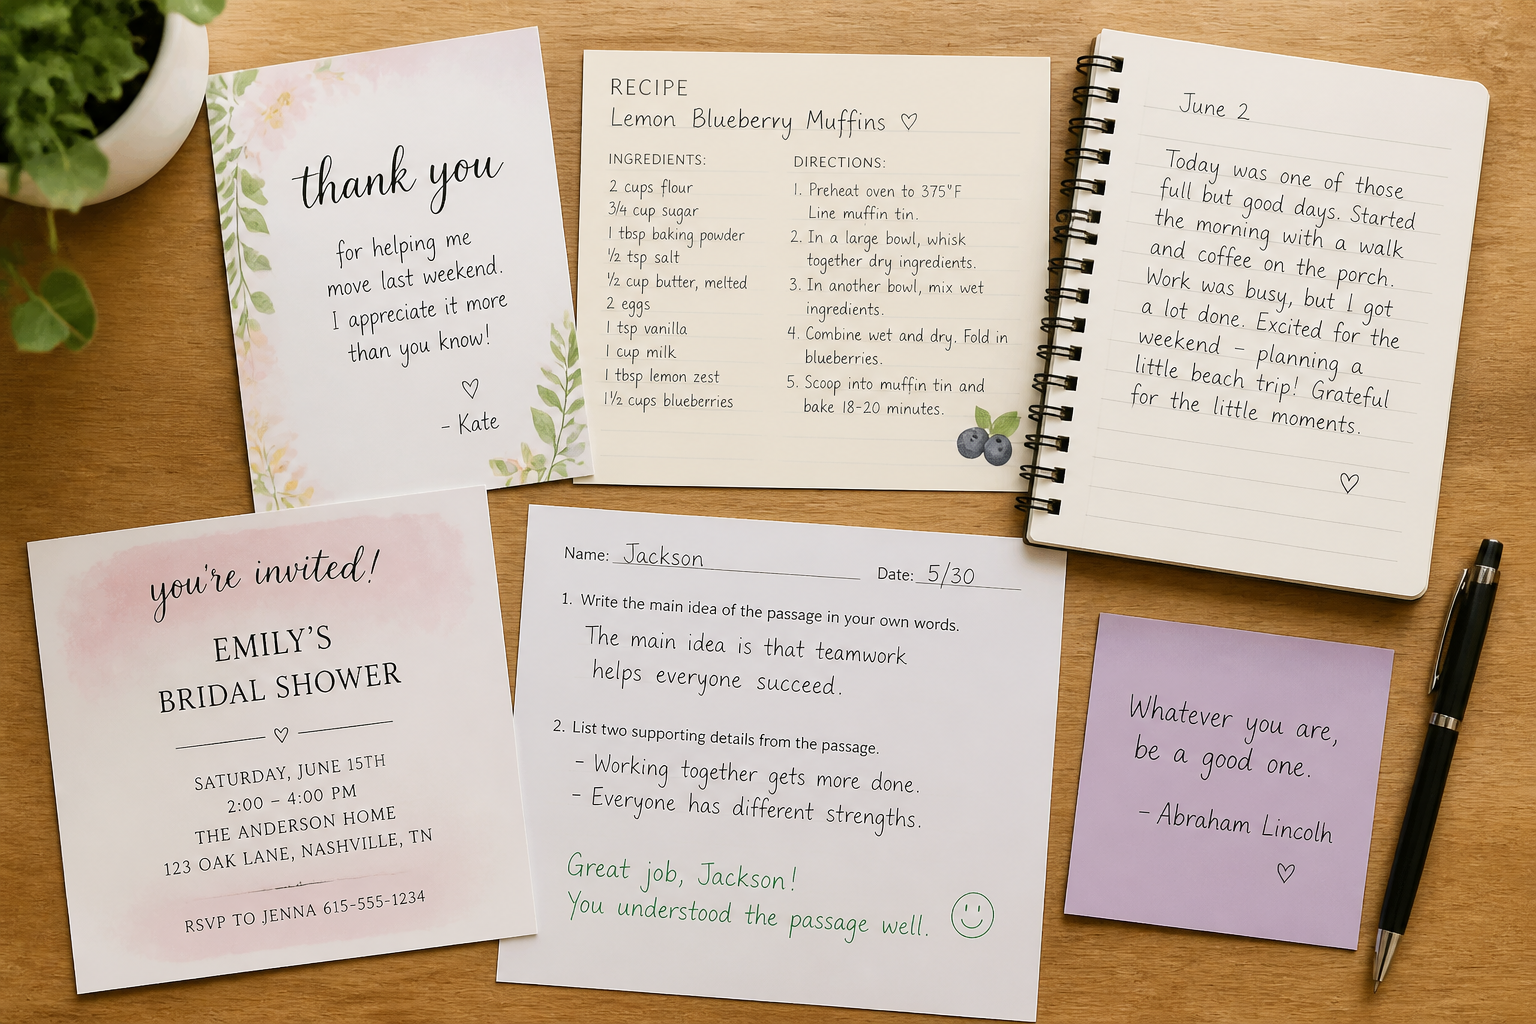 thank you
for helping me
move last weekend.
I appreciate it more
than you know!
♡
- Kate
RECIPE
Lemon Blueberry Muffins ♡
INGREDIENTS:
2 cups flour
3/4 cup sugar
1 tbsp baking powder
½ tsp salt
½ cup butter, melted
2 eggs
1 tsp vanilla
1 cup milk
1 tbsp lemon zest
1½ cups blueberries
DIRECTIONS:
1. Preheat oven to 375°F
Line muffin tin.
2. In a large bowl, whisk
together dry ingredients.
3. In another bowl, mix wet
ingredients.
4. Combine wet and dry. Fold in
blueberries.
5. Scoop into muffin tin and
bake 18-20 minutes.
June 2
Today was one of those
full but good days. Started
the morning with a walk
and coffee on the porch.
Work was busy, but I got
a lot done. Excited for the
weekend – planning a
little beach trip! Grateful
for the little moments.
♡
you're invited!
EMILY'S
BRIDAL SHOWER
♡
SATURDAY, JUNE 15TH
2:00 – 4:00 PM
THE ANDERSON HOME
123 OAK LANE, NASHVILLE, TN
RSVP TO JENNA 615-555-1234
Name: Jackson Date: 5/30
1. Write the main idea of the passage in your own words.
The main idea is that teamwork
helps everyone succeed.
2. List two supporting details from the passage.
- Working together gets more done.
- Everyone has different strengths.
Great job, Jackson!
You understood the passage well.
Whatever you are,
be a good one.
- Abraham Lincolh
♡